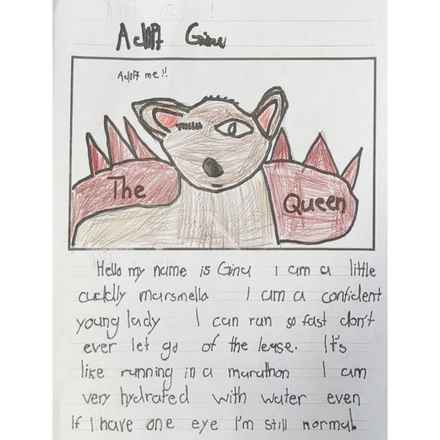 Adopt Gina
Adopt me!!
The
Queen
Hello my name is Gina I am a little
cuddly marsmella I am a confident
young lady I can run so fast don't
ever let go of the lease. It's
like running in a marathon I am
very hydrated with water even
If I have one eye I'm still normal